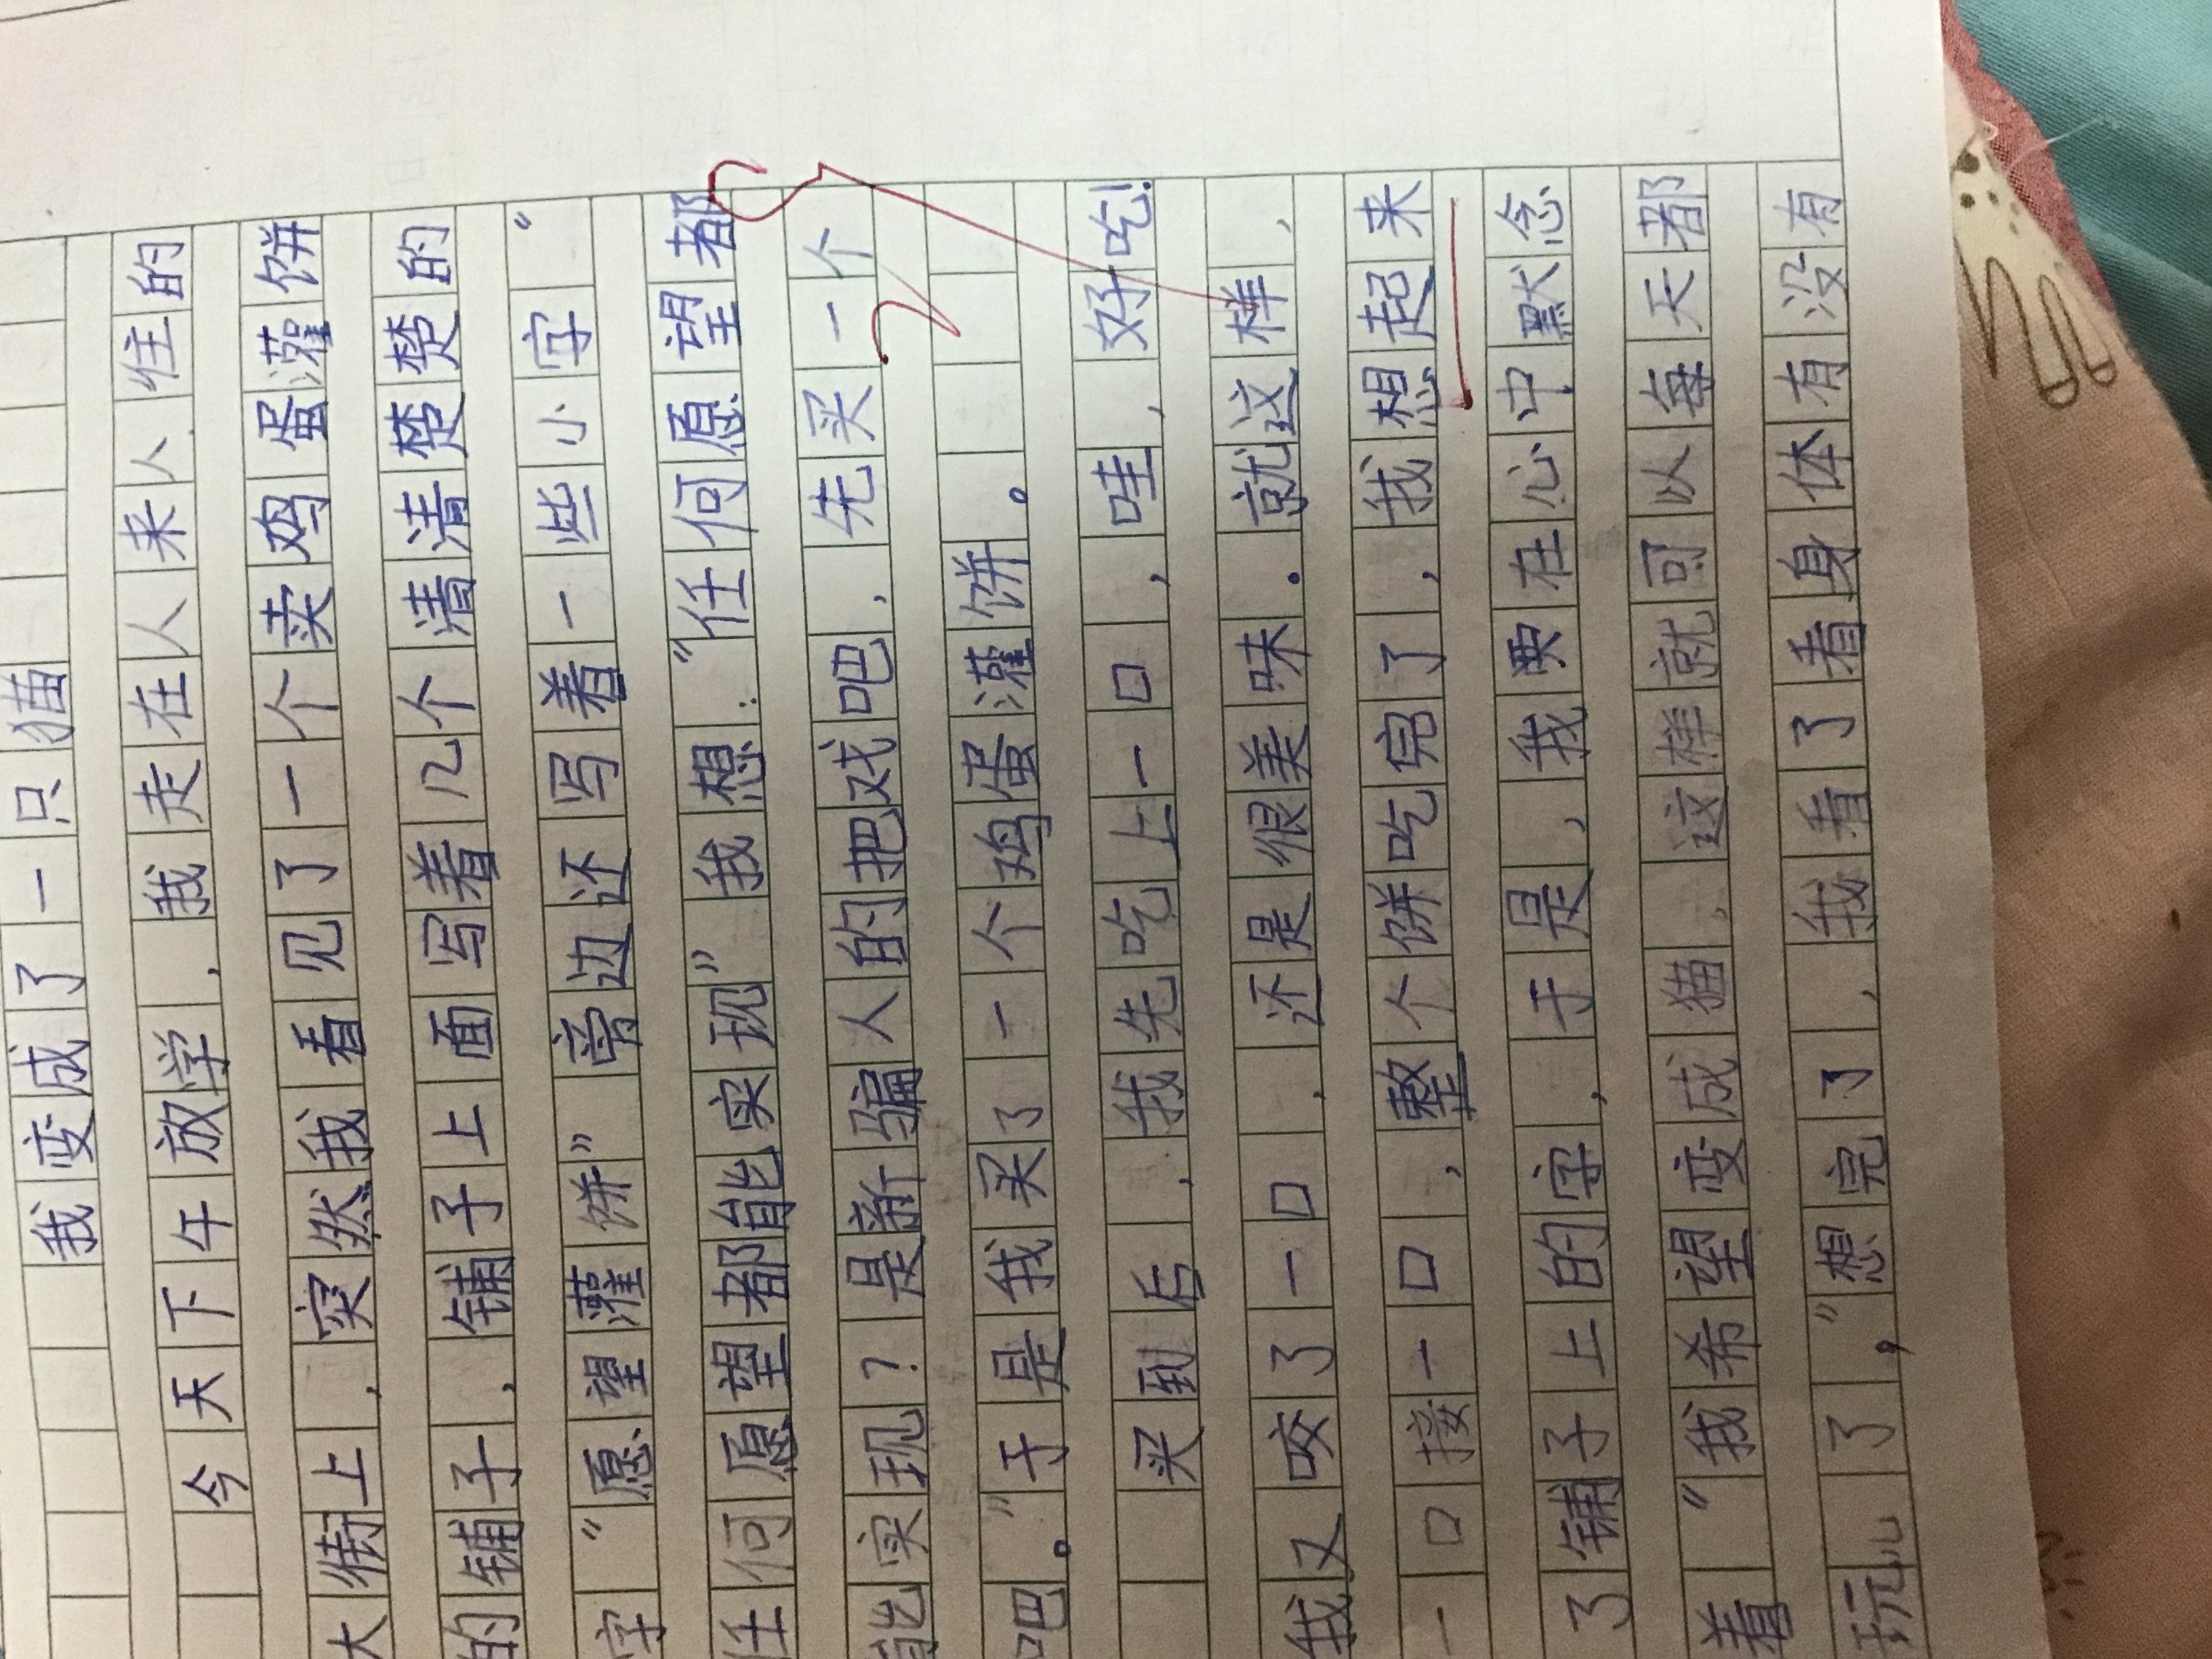 我变成了一只猫
今天下午放学，我走在人来人往的
大街上，突然我看见了一个卖鸡蛋灌饼
的铺子，铺子上面写着几个清清楚楚的
字“愿望灌饼”旁边还写着一些小字“
任何愿望都能实现”我想：“任何愿望都
能实现？是新骗人的把戏吧，先买一个
吧。”于是我买了一个鸡蛋灌饼。
买到后，我先吃上一口，哇，好吃！
我又咬了一口，还是很美味。就这样，
一口接一口，整个饼吃完了，我想起来
了铺子上的字，于是，我要在心中默念
着“我希望变成猫，这样就可以每天都
玩儿了，”想完了，我看了看身体有没有